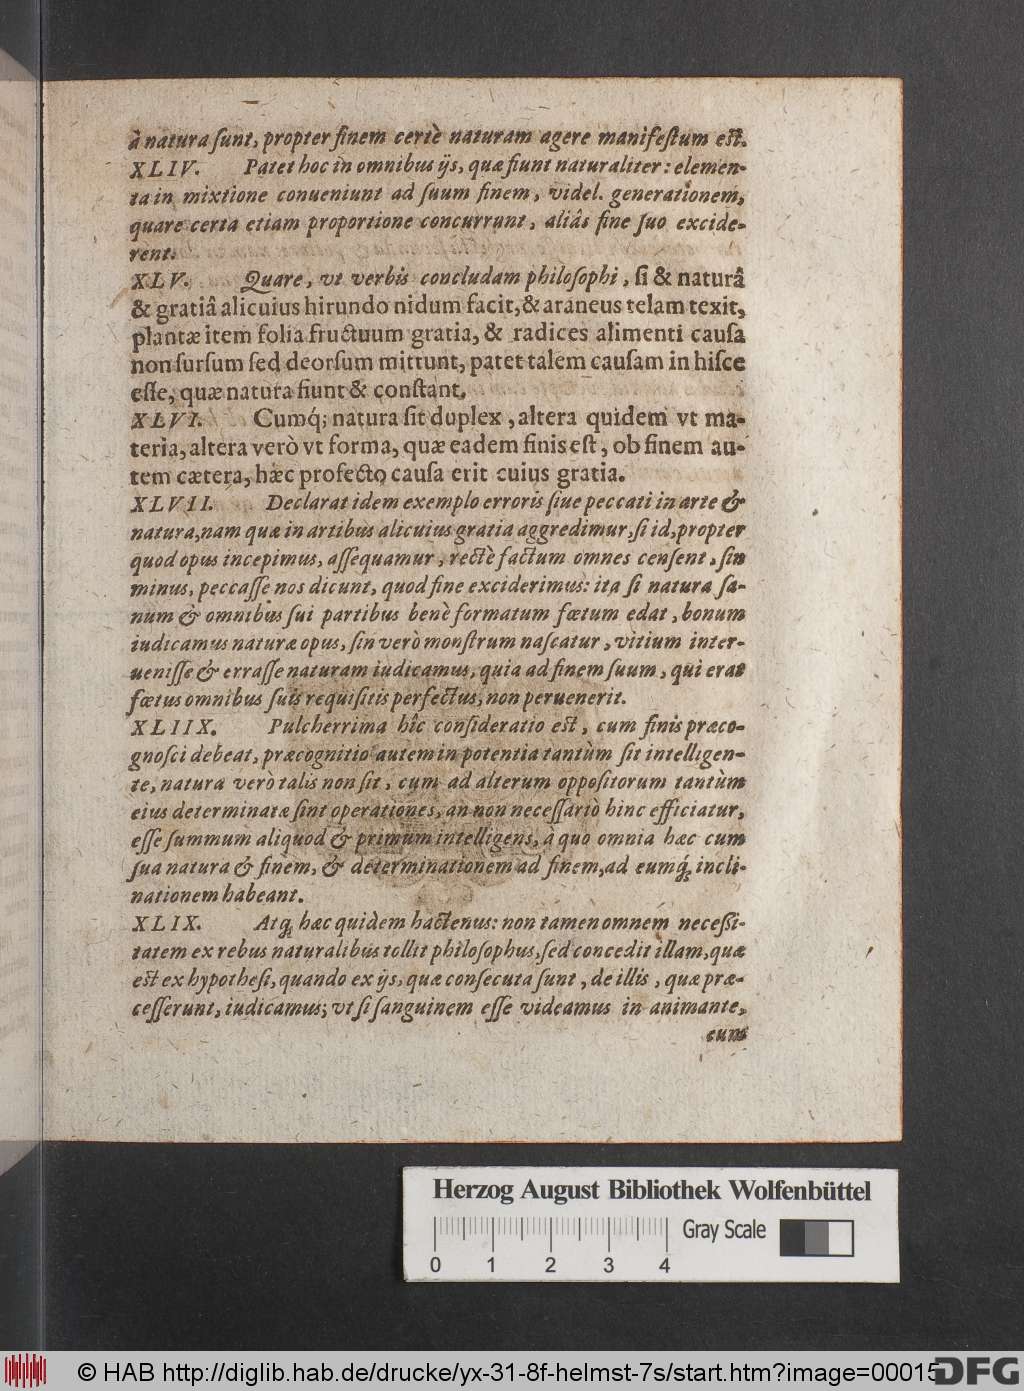 à natura ſunt, propter finem certè naturam agere manifeſtum eſt.
XLIV. Patet hoc in omnibus ijs, quæ fiunt naturaliter: elemen-
ta in mixtione conueniunt ad ſuum finem, videl. generationem,
quare certa etiam proportione concurrunt, aliâs fine ſuo excide-
rent.
XLV. Quare, vt verbis concludam philoſophi, ſi & naturâ
& gratiâ alicuius hirundo nidum facit, & araneus telam texit,
plantæ item folia fructuum gratia, & radices alimenti cauſa
non ſurſum ſed deorſum mittunt, patet talem cauſam in hiſce
eſſe, quæ natura fiunt & conſtant.
XLVI. Cumq́; natura ſit duplex, altera quidem vt ma-
teria, altera verò vt forma, quæ eadem finis eſt, ob finem au-
tem cætera, hæc profecto cauſa erit cuius gratia.
XLVII. Declarat idem exemplo erroris ſiue peccati in arte &
natura, nam quæ in artibus alicuius gratia aggredimur, ſi id, propter
quod opus incepimus, aſſequamur, rectè factum omnes cenſent, ſin
minus, peccaſſe nos dicunt, quod fine exciderimus: ita ſi natura ſa-
num & omnibus ſui partibus benè formatum fœtum edat, bonum
iudicamus naturæ opus, ſin verò monſtrum naſcatur, vitium inter-
ueniſſe & erraſſe naturam iudicamus, quia ad finem ſuum, qui erat
fœtus omnibus ſuis requiſitis perfectus, non peruenerit.
XLIIX. Pulcherrima hîc conſideratio eſt, cum finis præco-
gnoſci debeat, præcognitio autem in potentia tantùm ſit intelligen-
te, natura verò talis non ſit, cum ad alterum oppoſitorum tantùm
eius determinatæ ſint operationes, an non neceſſariò hinc efficiatur,
eſſe ſummum aliquod & primum intelligens, à quo omnia hæc cum
ſua natura & finem, & determinationem ad finem, ad eumq́; incli-
nationem habeant.
XLIX. Atq; hæc quidem hactenus: non tamen omnem neceſſi-
tatem ex rebus naturalibus tollit philoſophus, ſed concedit illam, quæ
eſt ex hypotheſi, quando ex ijs, quæ conſecuta ſunt, de illis, quæ præ-
ceſſerunt, iudicamus; vt ſi ſanguinem eſſe videamus in animante,
cum
Herzog August Bibliothek Wolfenbüttel
Gray Scale
0 1 2 3 4
© HAB http://diglib.hab.de/drucke/yx-31-8f-helmst-7s/start.htm?image=00015
DFG